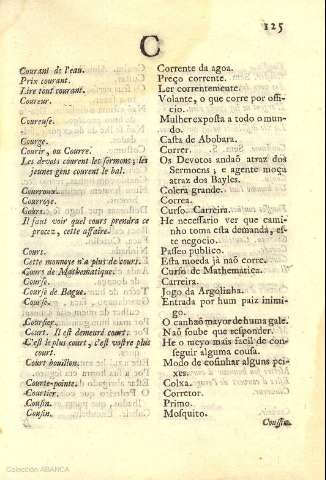 125
C
Courant de l'eau. Corrente da agoa.
Prix courant. Preço corrente.
Lire tout courant. Ler correntemente.
Coureur. Volante, o que corre por offi-
cio.
Coureuse. Mulher exposta a todo o mun-
do.
Courge. Casta de Abobara.
Courir, ou Courre. Correr.
Les devots courent les sermons; les Os Devotos andaõ atraz dos
jeunes gens courent le bal. Sermoens; e agente moça
atraz dos Bayles.
Courroux. Colera grande.
Courroye. Correa.
Cours. Curso. Carreira.
Il faut voir quel cours prendra ce He necessario ver que cami-
procez, cette affaire. nho toma esta demanda, es-
te negocio.
Court. Paseo publico.
Cette monnoye n'a plus de cours. Esta moeda já naõ corre.
Cours de Mathematique. Curso de Mathematica.
Course. Carreira.
Course de Bague. Jogo da Argolinha.
Course. Entrada por hum paiz inimi-
go.
Coursier. O canhaõ mayor de huma gale.
Court. Il est demeuré court. Naõ soube que responder.
C'est le plus court, c'est vostre plus He o meyo mais facil de con-
court. seguir alguma cousa.
Court bouillon. Modo de cosinhar alguns pei-
xes.
Courte-pointe. Colxa.
Courtier. Corretor.
Cousin. Primo.
Cousin. Mosquito.
Coussin
Colección ABANCA